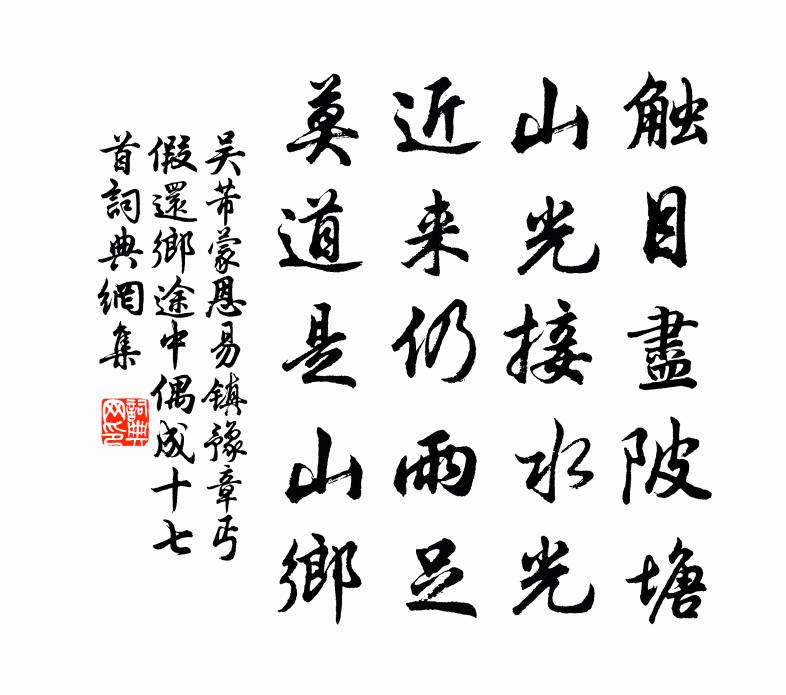 触目盡陂塘
山光接水光
近来仍雨足
莫道是山鄉
吴芾蒙恩易鎮豫章丐
假還鄉途中偶成十七
首詞典網集
詞典网印